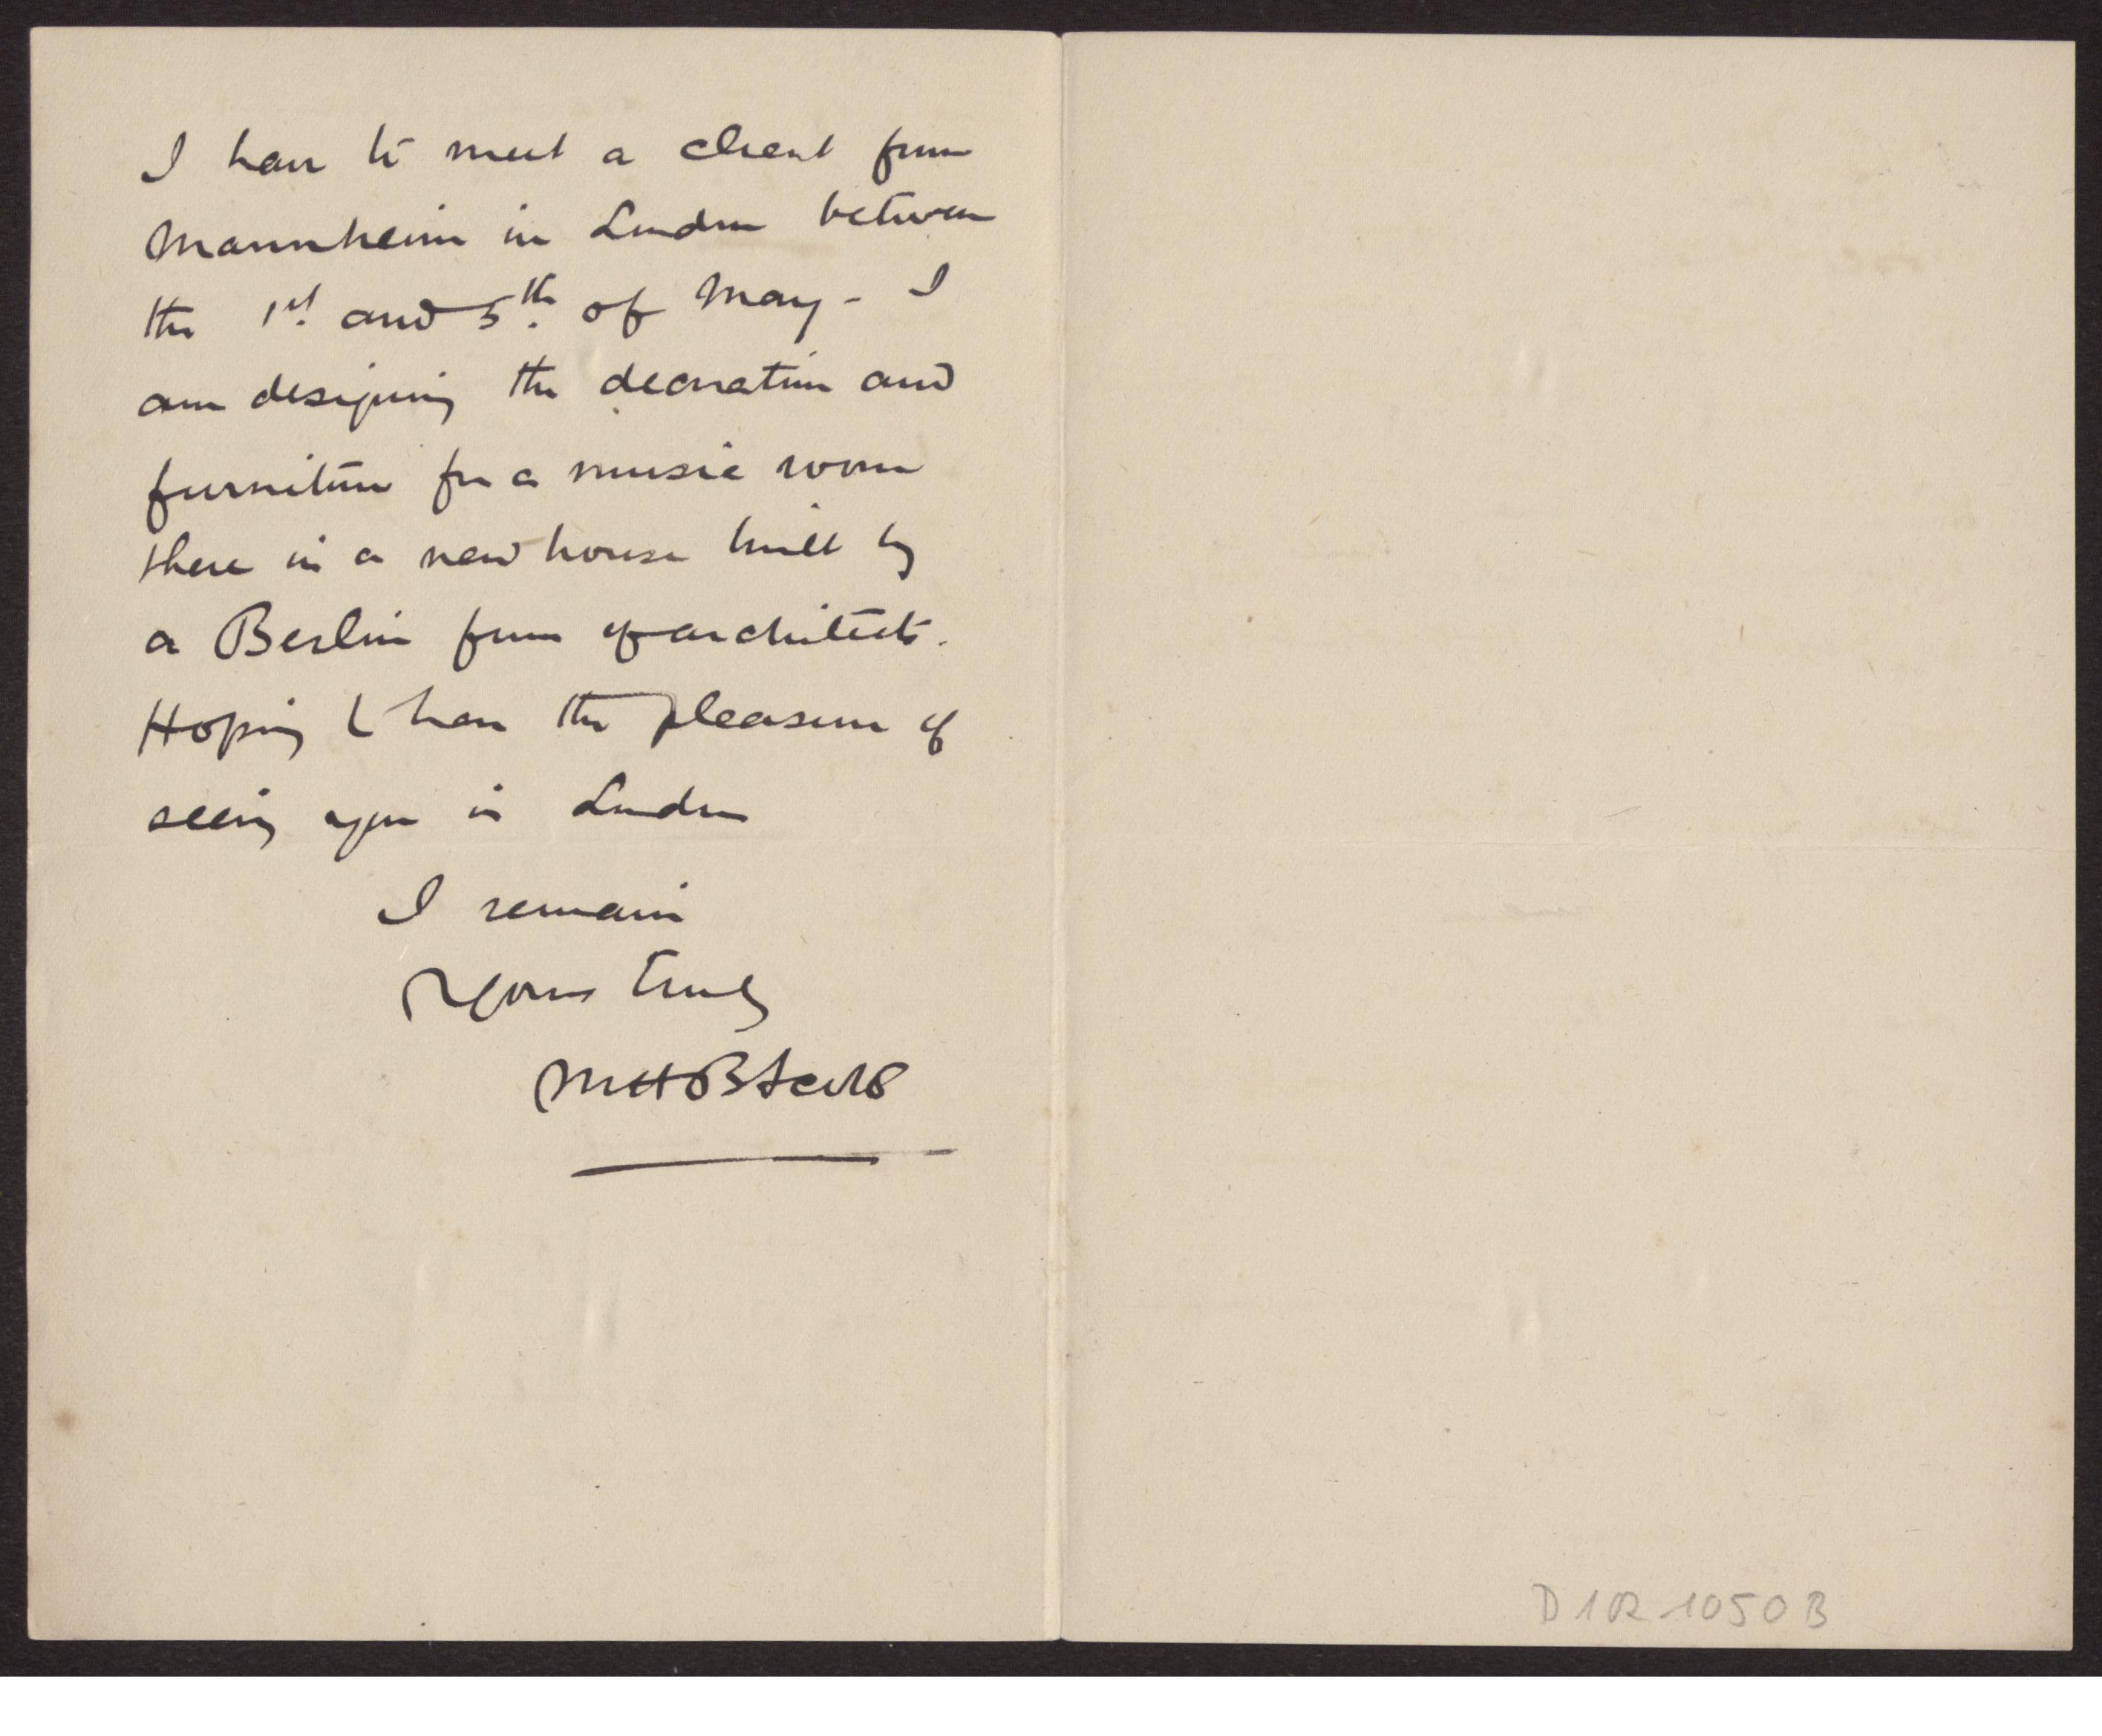 I have to meet a client from
Mannheim in London between
the 1st. and 5th. of May - I
am designing the decoration and
furniture for a music room
there in a new house built by
a Berlin firm of architects.
Hoping to have the pleasure of
seeing you in London
I remain
Yours truly
MHBaillie Scott
D 102 1050 B